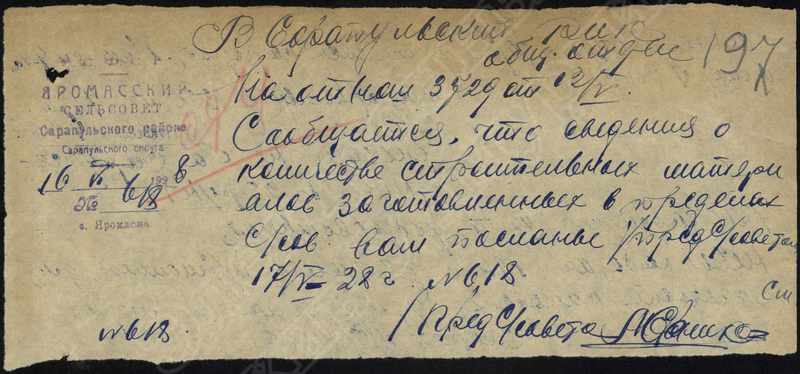 В Сарапульский рик
общ. отдел
197
ЯРОМАССКИЙ
СЕЛЬСОВЕТ
Сарапульского района
Сарапульского округа
16 VI 1928
№ 618
с. Яромаска
На отнош 3529 от 12/V.
Сообщается, что сведения о
количестве строительных матери
алов заготовленных в пределах
С/сов вам посланы пред С/совета
17/V-28 г. №618
См
Пред С/совета
№618.